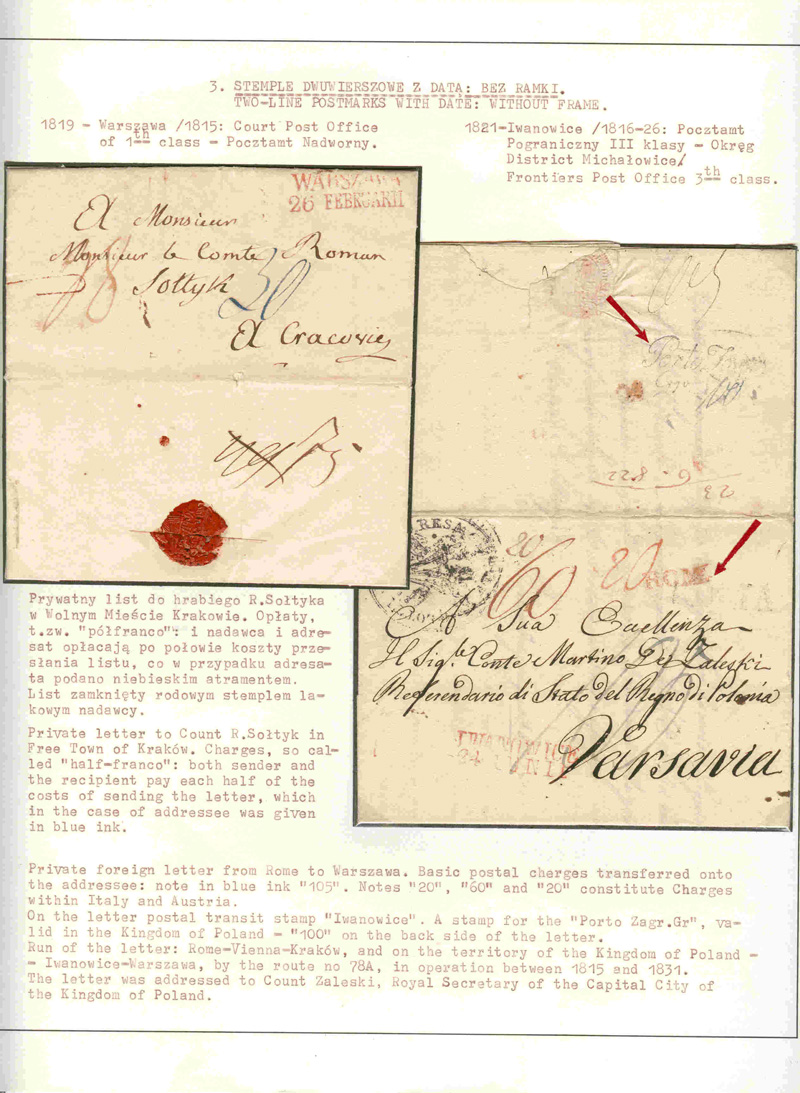 3. STEMPLE DWUWIERSZOWE Z DATĄ: BEZ RAMKI.
TWO-LINE POSTMARKS WITH DATE: WITHOUT FRAME.
1819 - Warszawa /1815: Court Post Office
of 1th class - Pocztamt Nadworny.
1821-Iwanowice /1816-26: Pocztamt
Pograniczny III klasy - Okręg
District Michałowice/
Frontiers Post Office 3th class.
WARSZAWA
26 FEBRUARII
A Monsieur
Monsieur le Comte Roman
Sołtyk
30
A Cracovie
Porto
20
60
20
ROMA
A Sua Eccellenza
Il Sigr. Conte Martino De Zaleski
Referendario di Stato del Regno di Polonia
IWANOWICE
Varsavia
Prywatny list do hrabiego R.Sołtyka
w Wolnym Mieście Krakowie. Opłaty,
t.zw. "półfranco": i nadawca i adre-
sat opłacają po połowie koszty prze-
słania listu, co w przypadku adresa-
ta podano niebieskim atramentem.
List zamknięty rodowym stemplem la-
kowym nadawcy.
Private letter to Count R.Sołtyk in
Free Town of Kraków. Charges, so cal-
led "half-franco": both sender and
the recipient pay each half of the
costs of sending the letter, which
in the case of addressee was given
in blue ink.
Private foreign letter from Rome to Warszawa. Basic postal charges transferred onto
the addressee: note in blue ink "105". Notes "20", "60" and "20" constitute Charges
within Italy and Austria.
On the letter postal transit stamp "Iwanowice". A stamp for the "Porto Zagr.Gr", va-
lid in the Kingdom of Poland - "100" on the back side of the letter.
Run of the letter: Rome-Vienna-Kraków, and on the territory of the Kingdom of Poland -
- Iwanowice-Warszawa, by the route no 78A, in operation between 1815 and 1831.
The letter was addressed to Count Zaleski, Royal Secretary of the Capital City of
the Kingdom of Poland.